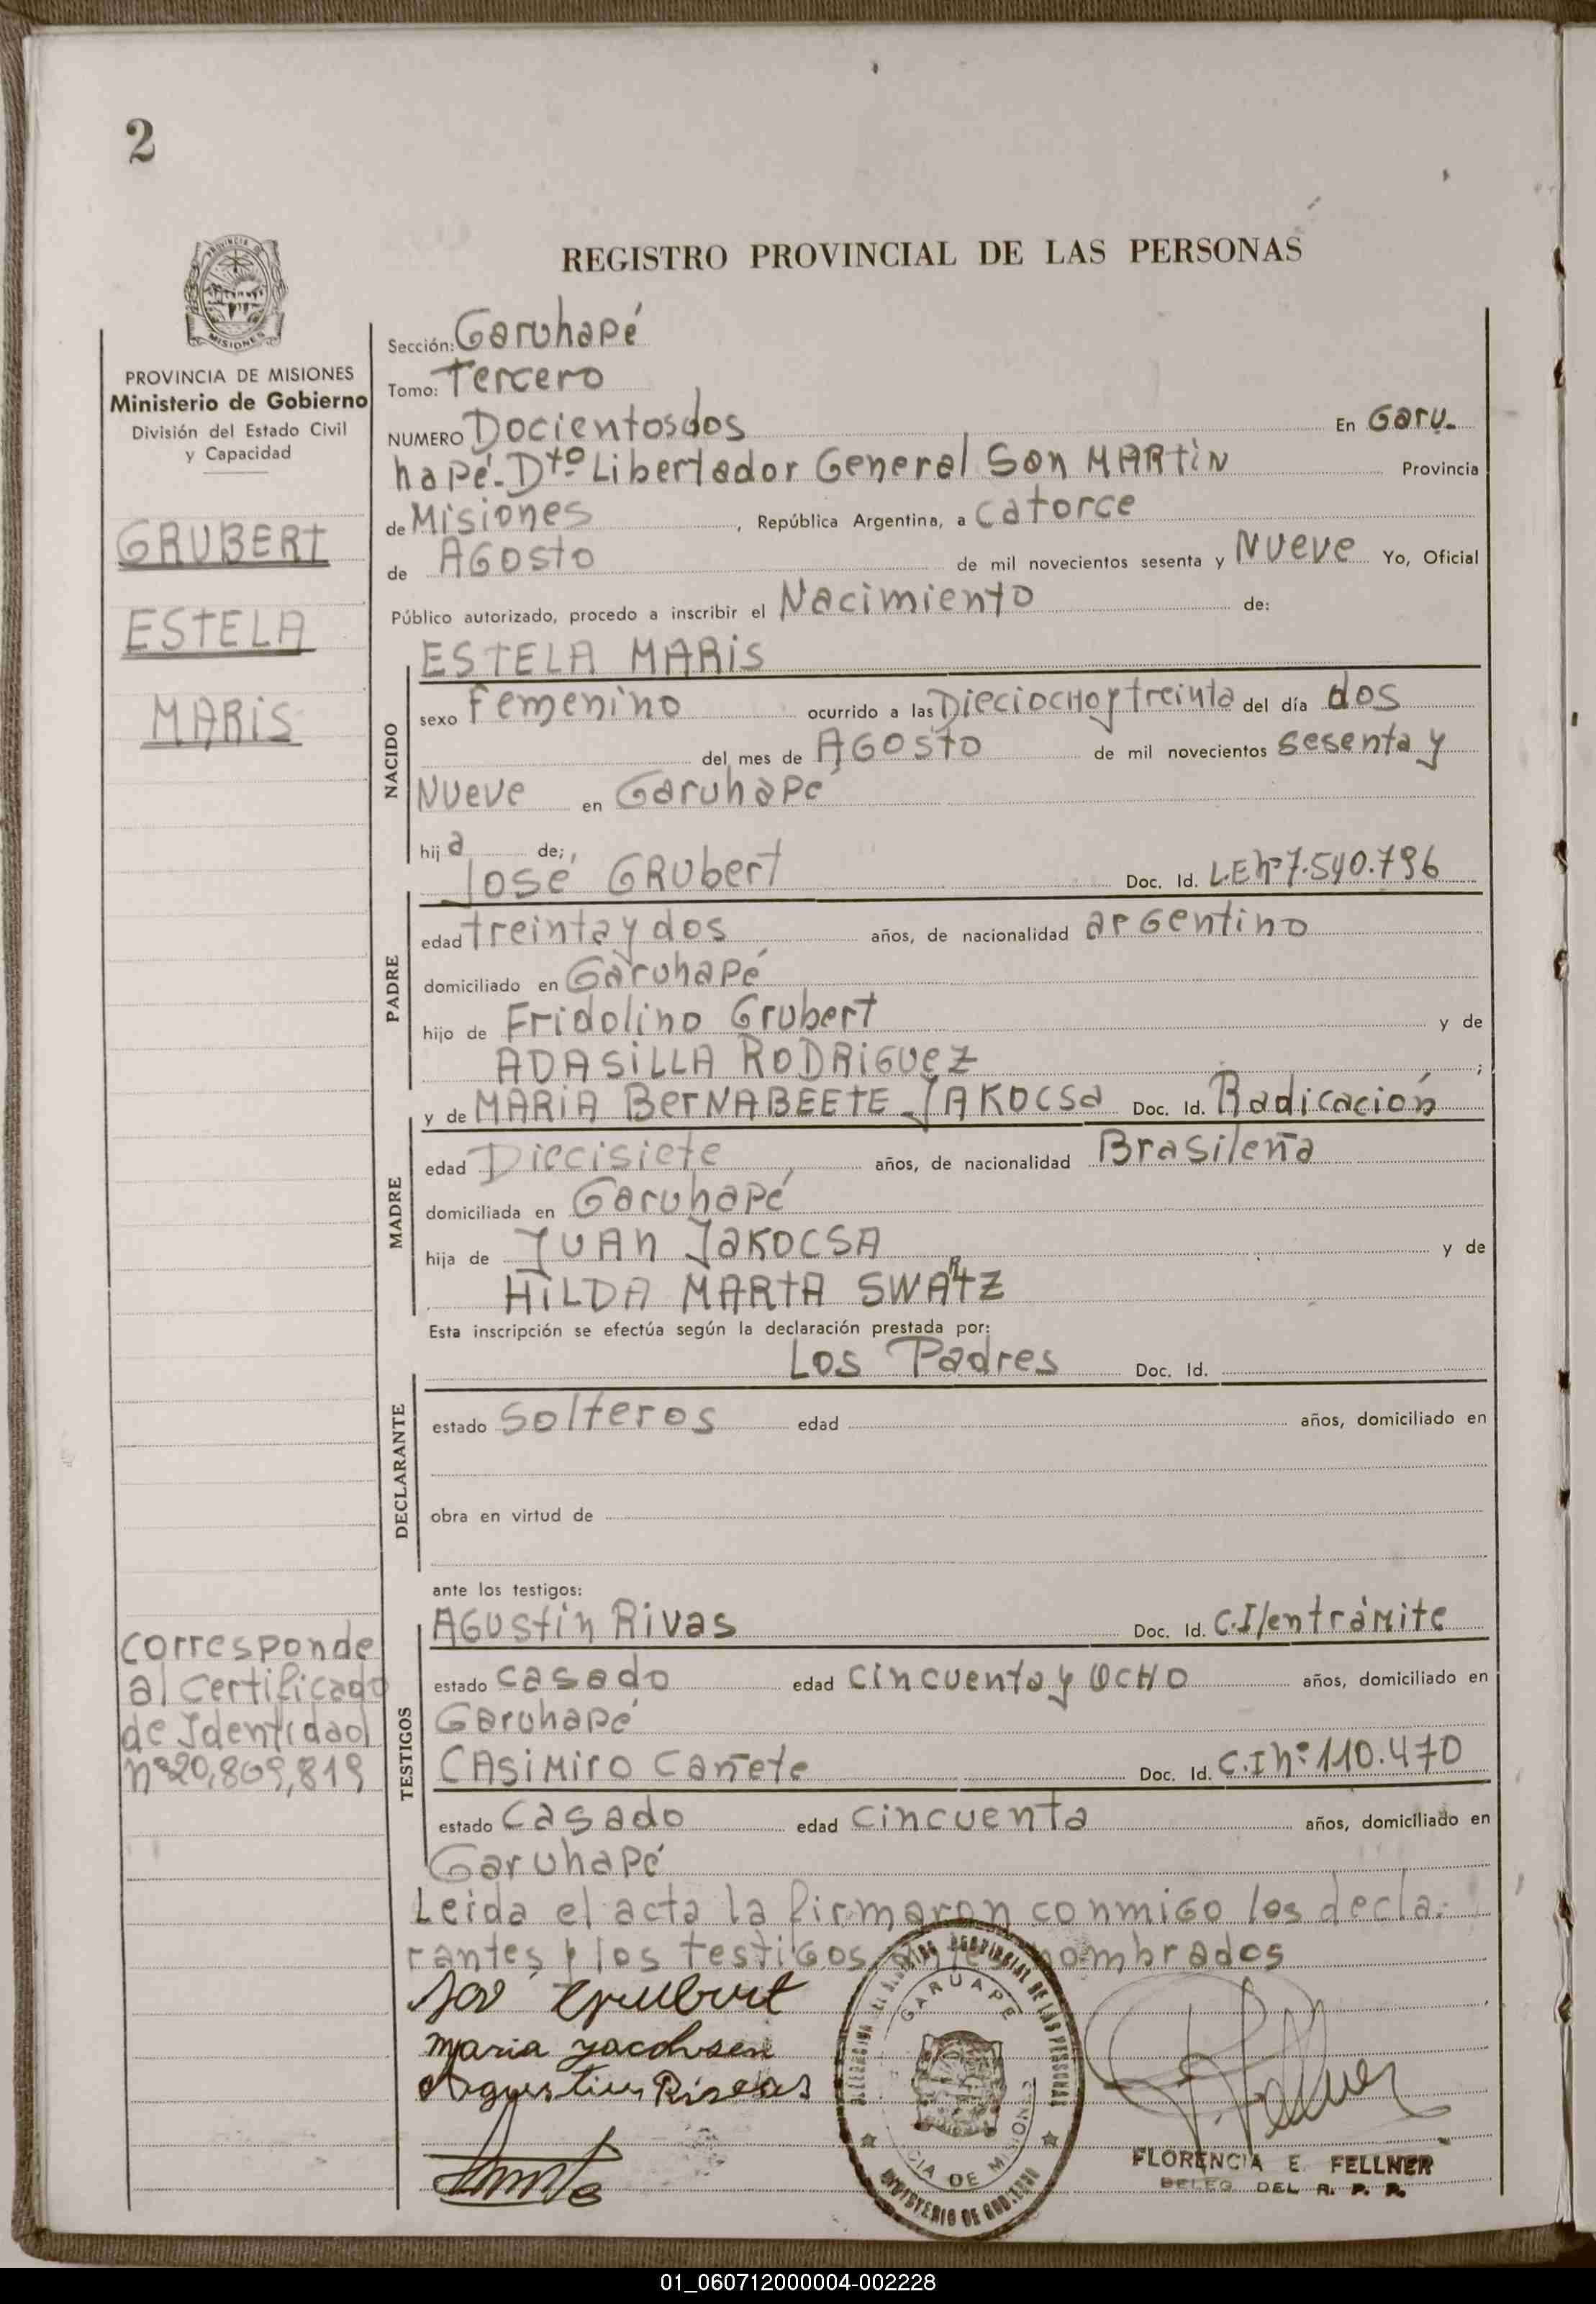 2
REGISTRO PROVINCIAL DE LAS PERSONAS
PROVINCIA DE MISIONES
Ministerio de Gobierno
División del Estado Civil
y Capacidad
GRUBERT
ESTELA
MARIS
corresponde
al certificado
de Identidad
nº20,809,819
Sección: Garuhapé
Tomo: Tercero
NUMERO Docientosdos En Garu-
hapé-Dtº Libertador General San MARTIN Provincia
de Misiones, República Argentina, a catorce
de AGosto de mil novecientos sesenta y Nueve Yo, Oficial
Público autorizado, procedo a inscribir el Nacimiento de:
ESTELA MARIS
NACIDO
sexo Femenino ocurrido a las Dieciocho y treinta del día dos
del mes de AGosto de mil novecientos sesenta y
Nueve en Garuhapé
hij a de;
José GRUbert Doc. Id. L.E nº 7.540.796
PADRE
edad treinta y dos años, de nacionalidad arGentino
domiciliado en Garuhapé
hijo de Fridolino Grubert y de
ADASILLA RODRIGUEZ;
y de MARIA BerNABEETE JAKOCSa Doc. Id. Radicación
MADRE
edad Diecisiete años, de nacionalidad Brasileña
domiciliada en Garuhapé
hija de JUAN JaKOCSA y de
HILDA MARTA SWARTZ
Esta inscripción se efectúa según la declaración prestada por:
Los Padres Doc. Id.
DECLARANTE
estado solteros edad años, domiciliado en
obra en virtud de
ante los testigos:
AGUstín Rivas Doc. Id. C.I/en tràmite
TESTIGOS
estado casado edad cincuenta y OCHO años, domiciliado en
Garuhapé
CASIMIRO Cañete Doc. Id. C.I nº 110.470
estado casado edad cincuenta años, domiciliado en
Garuhapé
Leida el acta la firmaron conmiGo los decla-
rantes y los testiGos antes nombrados
José Grubert
maria yacohsen
Agustin Rivas
GARUAPE
CIA DE MISIONES
MINISTERIO DE GOBIERNO
FLORENCIA E. FELLNER
DELEG. DEL R. P. P.
01_060712000004-002228